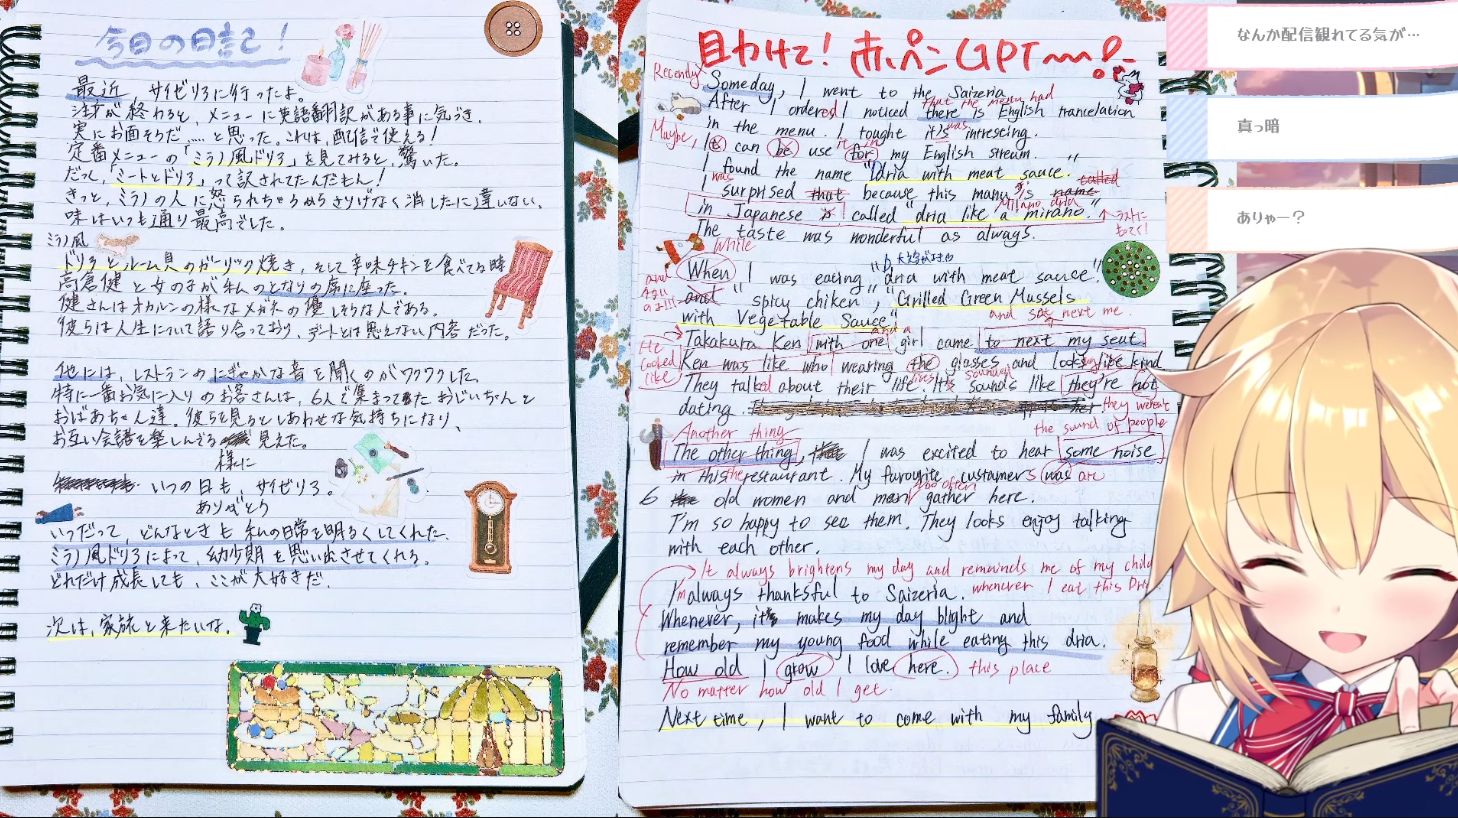 今日の日記!
最近、サイゼリアに行ったよ。
注文が終わると、メニューに英語翻訳がある事に気づき、
実にお面そうだ……と思った。これは、配信で使える!
定番メニューの「ミラノ風ドリア」を見てみると、驚いた。
だって、「ミートとドリア」って訳されてたんだもん!
きっと、ミラノの人に怒られちゃうからさりげなく消したに違いない。
味はいつも通り最高でした。
ミラノ風
ドリアとムール貝のガーリック焼き、そして辛味チキンを食べてる時
高倉健と女の子が私のとなりの席に座った。
健さんはオカルンの様なメガネの優しそうな人である。
彼らは人生について語り合っており、デートとは思えない内容だった。
他には、レストランのにぎやかな音を聞くのがワクワクした。
特に一番お気に入りのお客さんは、6人で集まってたおじいちゃんと
おばあちゃん達。彼らを見るとしあわせな気持ちになり、
お互い会話を楽しんでる見えた。
様に
いつの日も、サイゼリア。
ありがとう
いつだって、どんなときも私の日常を明るくしてくれた。
ミラノ風ドリアによって、幼少期を思い出させてくれる。
どれだけ成長しても、ここが大好きだ。
次は、家族と来たいな。
目わけて! 赤ペンGPT〜〜!
Recently
Someday, I went to the Saizeria
that the menu had
After I ordered I noticed there is English trancelation
Maybe,
in the menu. I tought it's intrescing.
was
I can be use for my English stream.
it in
I found the name "Dria with meat sauce."
was
I surprised that because this manu's name
called
in Japanese is called "dria like a mirano."
Milano dria
ラストにもってく!
The taste was wonderful as always.
While
When I was eating "dria with meat sauce"
and
and "spicy chiken", "Grilled Green Mussels
with Vegetable Sauce"
and sat next me.
and a
Takakura Ken with one girl came to next my seat.
He looked like
Ken was like who wearing the glasses and looks like kind
They talked about their life. It's sounds like they're not
dating.
they weren't
Another thing
the sound of people
The other thing, I was excited to hear some noise
in this restaurant. My favourite custamers was are
6 old women and men gather here.
I'm so happy to see them. They looks enjoy talking
with each other.
It always brightens my day and remainds me of my child
whenever I eat this Dri
I'm always thanksful to Saizeria.
Whenever, it's makes my day blight and
remember my young food while eating this dria.
How old I grow I love here. this place
No matter how old I get.
Next time, I want to come with my family
なんか配信観れてる気が…
真っ暗
ありゃー?